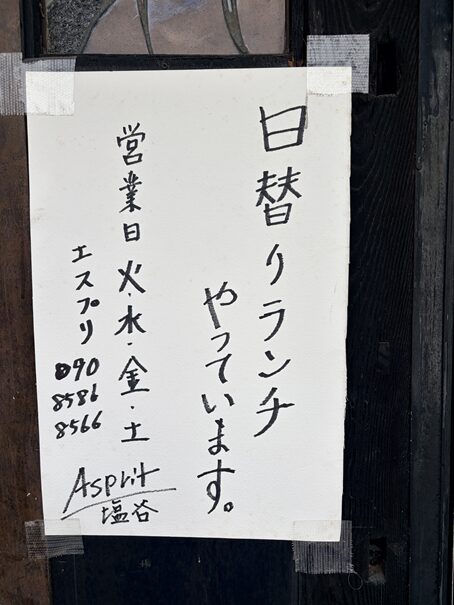 日替りランチ
やっています。
営業日 火・水・金・土
エスプリ
090
8586
8566
Asprit
塩谷